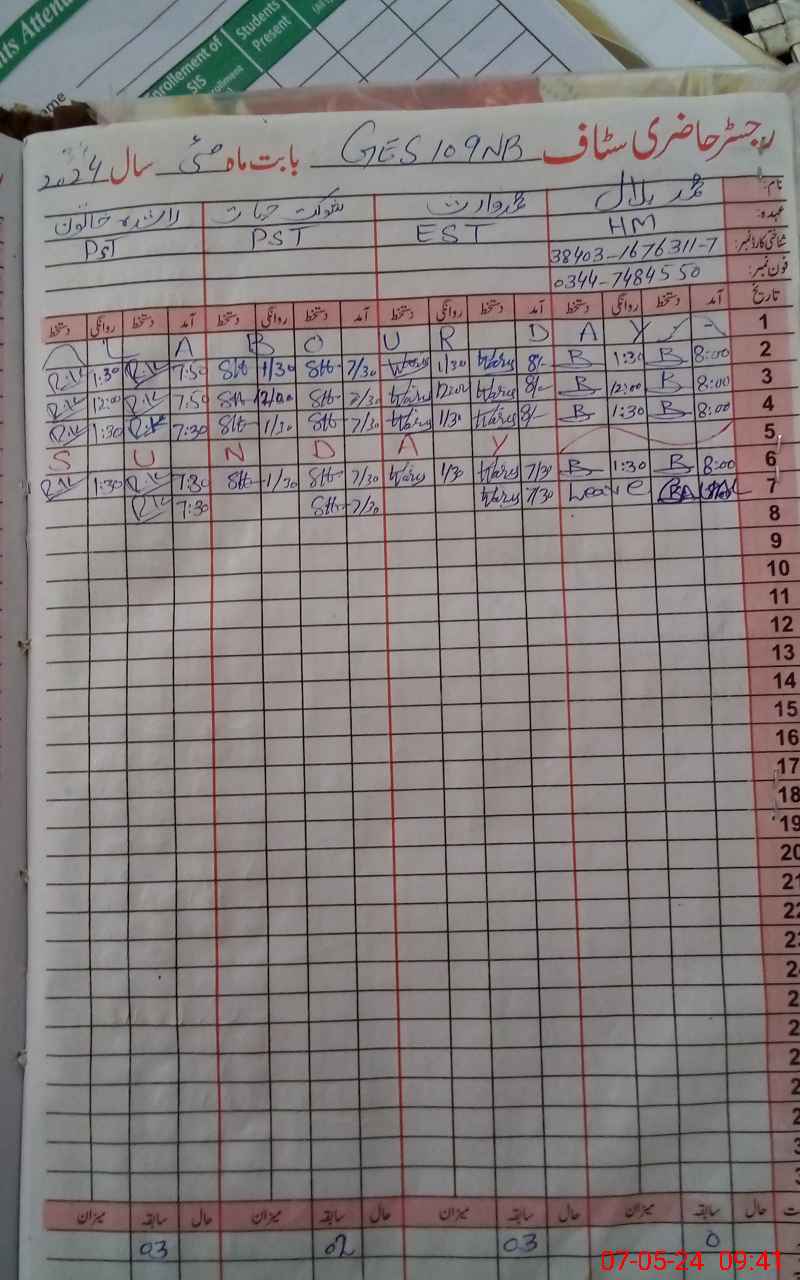 Students Present
Enrollement of SIS
رجسٹر حاضری سٹاف GES 109NB بابت ماہ مئی سال 2024
نام: محمد بلال محمد وارث شوکت حیات راشدہ خاتون
عہدہ: HM EST PST PST
شناختی کارڈ نمبر: 38403-1676311-7
فون نمبر: 0344-7484550
تاریخ آمد دستخط روانگی دستخط آمد دستخط روانگی دستخط آمد دستخط روانگی دستخط آمد دستخط روانگی دستخط
1 L A B O U R D A Y
2 8:00 B 1:30 B 8/- Waris 1/30 Waris 7/30 SH 1/30 SH 7:50 R.K 1:30 R.K
3 8:00 B 12:00 B 8/- Waris 12:00 Waris 7/30 SH 12/00 SH 7:50 R.K 12:00 R.K
4 8:00 B 1:30 B 8/- Waris 1/30 Waris 7/30 SH 1/30 SH 7:30 R.K 1:30 R.K
5 S U N D A Y
6 8:00 B 1:30 B 7/30 Waris 1/30 Waris 7/30 SH 1/30 SH 7:30 R.K 1:30 R.K
7 Leave 7/30 Waris 7/30 SH 7:30 R.K
8
9
10
11
12
13
14
15
16
17
18
19
20
21
22
23
حال سابقہ میزان حال سابقہ میزان حال سابقہ میزان حال سابقہ میزان
0 03 02 03
07-05-24 09:41